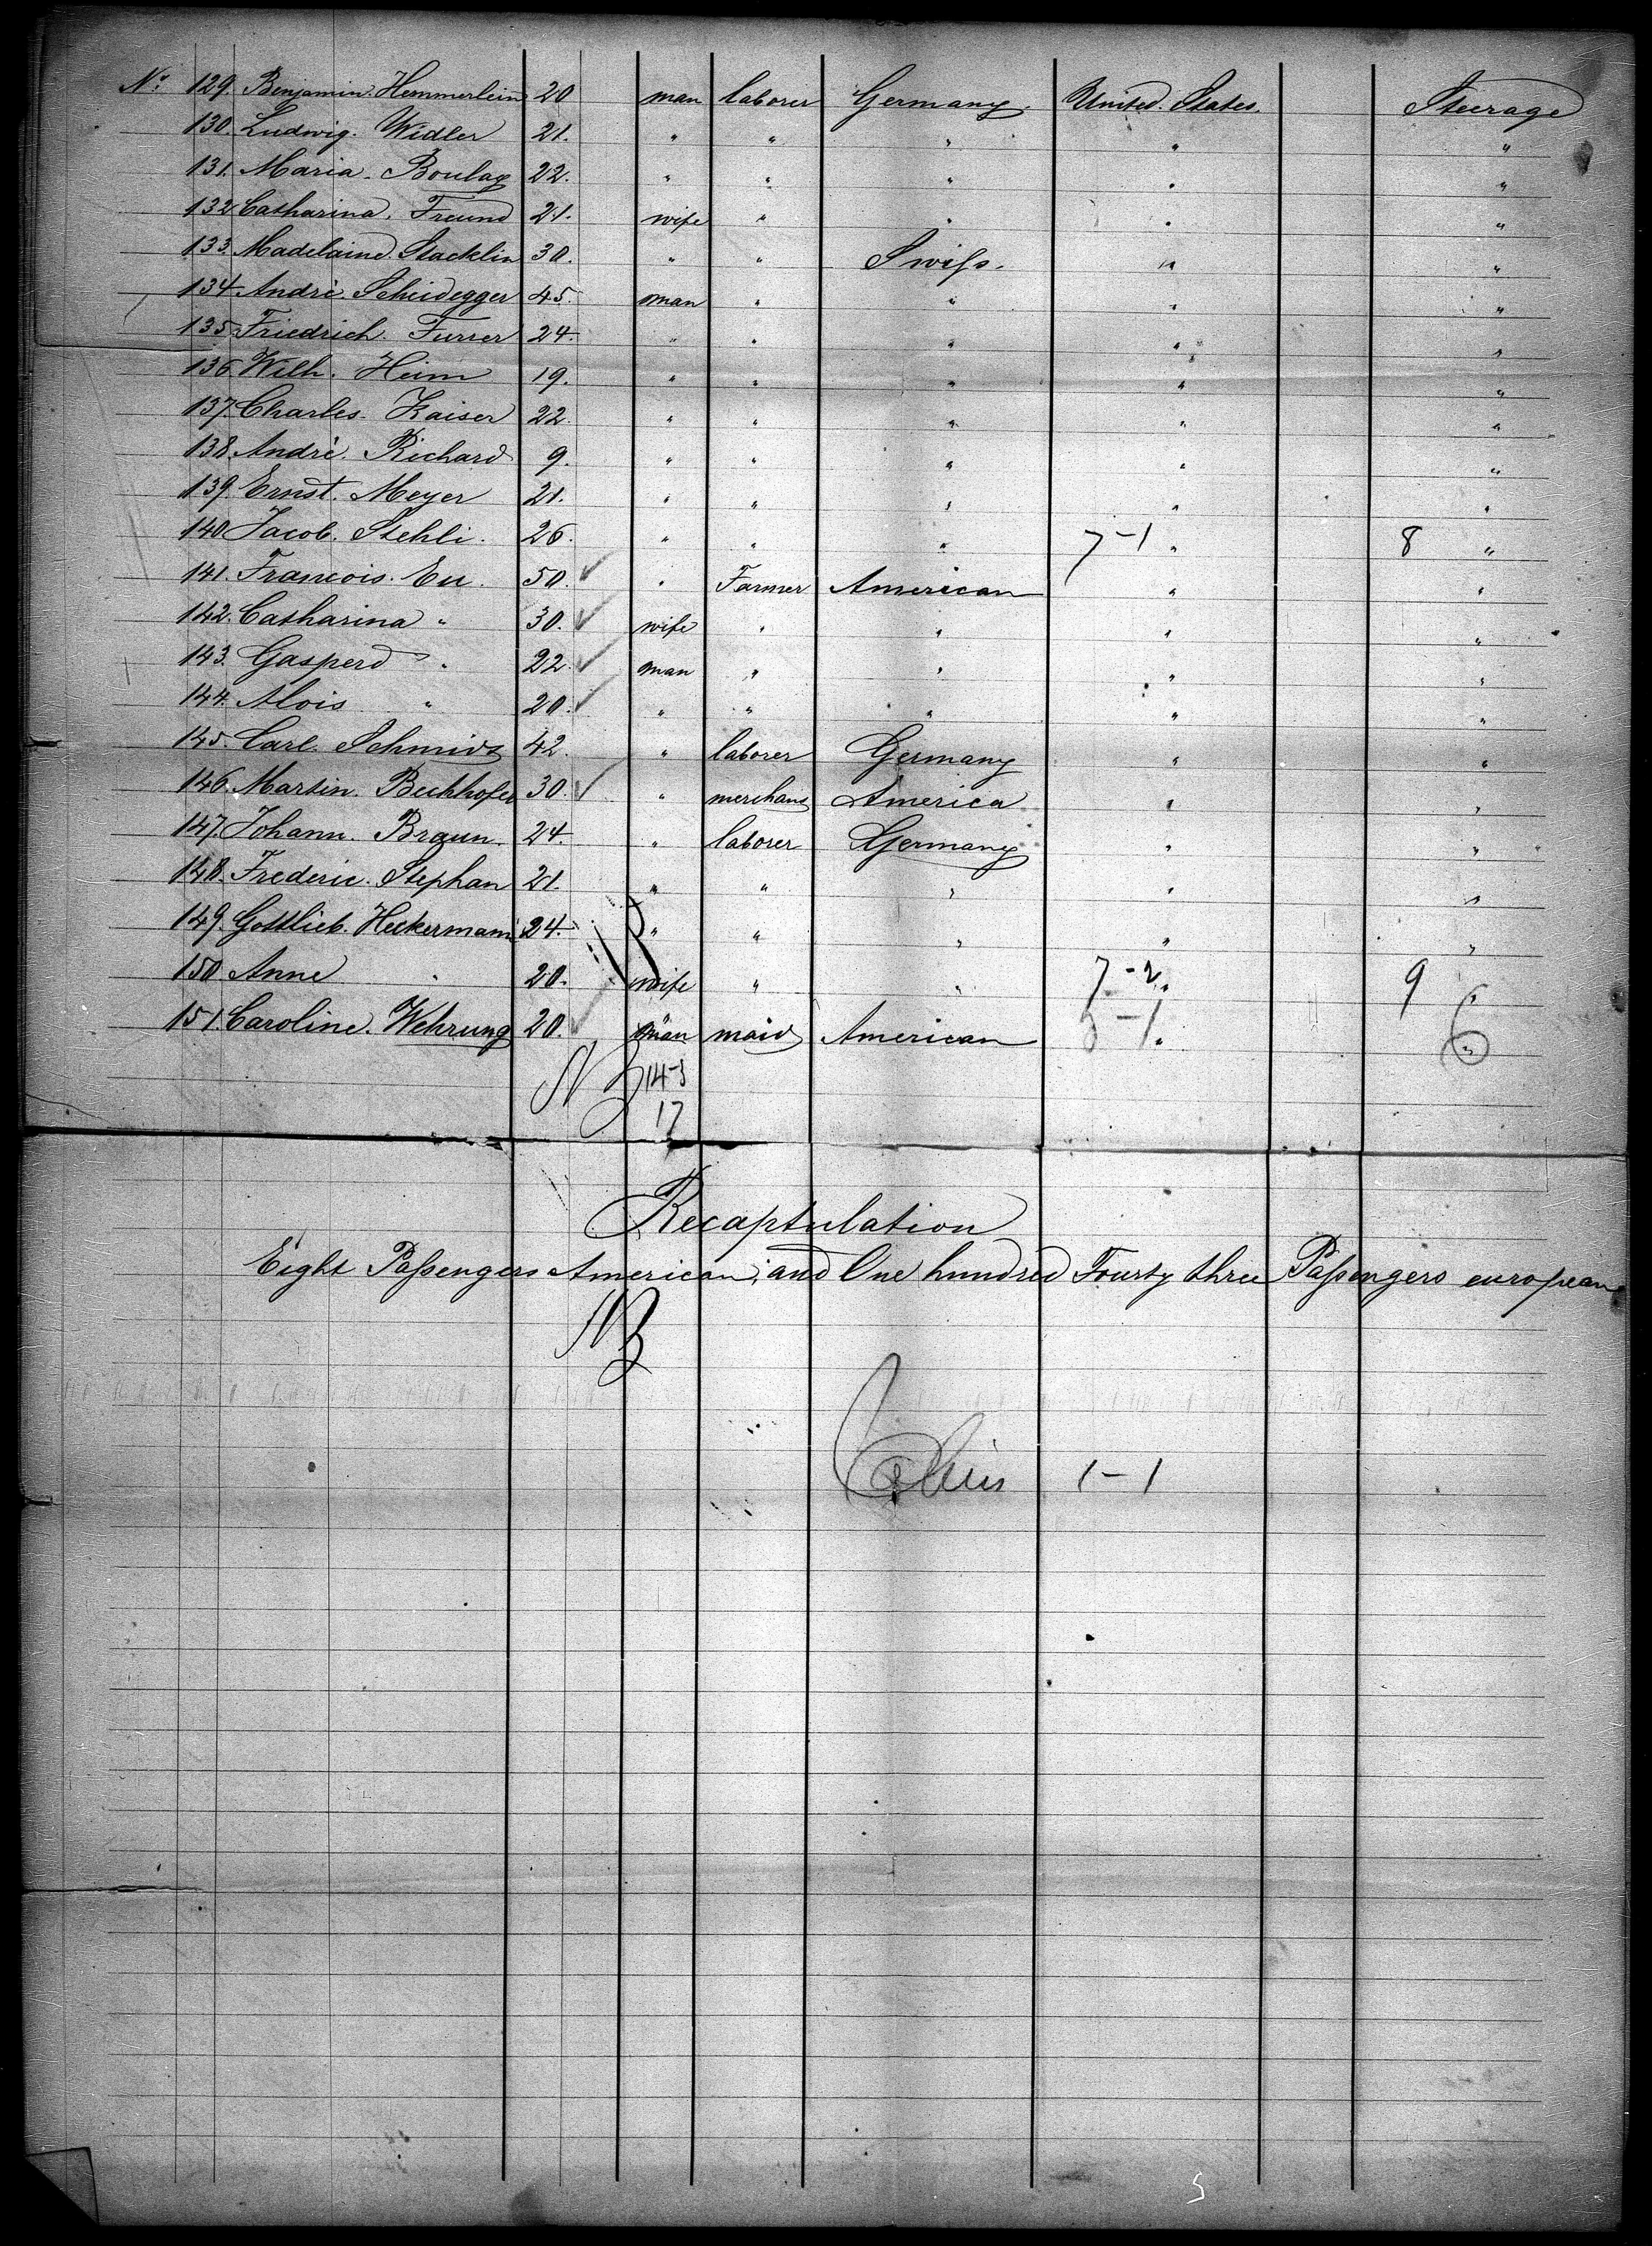 No 129. Benjamin. Hemmerlein 20 man laborer Germany. United. States. Steerage
130. Ludwig. Widler 21. " " " " "
131. Maria. Boulay 22. " " " " "
132 Catharina. Freund 21. wife " " " "
133. Madelaine. Stacklin 30. " " Swiss. " "
134 André. Scheidegger 45. man " " " "
135 Friedrich. Furrer 24. " " " " "
136. Wilh. Heim 19. " " " " "
137. Charles. Kaiser 22. " " " " "
138. André. Richard 9. " " " " "
139. Ernst. Meyer 21. " " " " "
140. Jacob. Stehli. 26. " " " 7-1 " 8 "
141. Francois. Eu. 50. ✓ " Farmer American " "
142. Catharina " 30. ✓ wife " " " "
143. Gasperd " 22. ✓ man " " " "
144. Alois " 20. ✓ " " " " "
145. Carl. Schmidt 42. " laborer Germany " "
146. Martin. Bechhofer 30. ✓ " merchant America " "
147. Johann. Braun. 24. " laborer Germany " "
148. Frederic. Stephan 21. " " " " "
149. Gottlieb. Heckermann 24. " " " " "
150 Anne " 20. wife " " 7-2 " 9 "
151. Caroline. Wehrung 20. ✓ man maid American 5-1 " 6 "
14-3
17
Recaptulation
Eight Passengers American, and One hundred Fourty three Passengers european
1-1
5